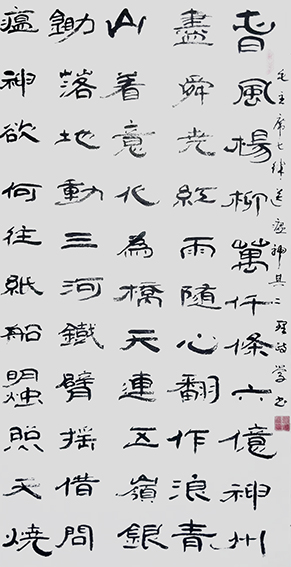 旾風楊柳萬仟條六億神州
盡舜尭紅雨隨心翻作浪青
山着意化為橋天連五嶺銀
鋤落地動三河鐵臂摇借問
瘟神欲何往紙船明燭照天燒
毛主席七律送瘟神其二